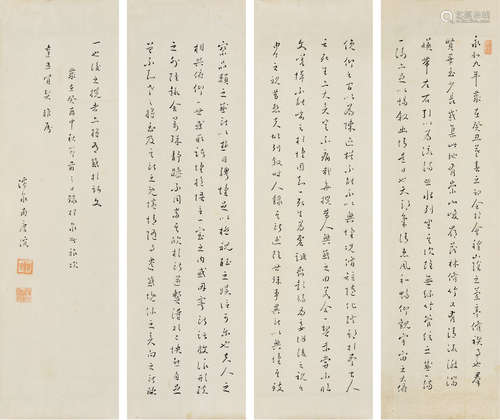 永和九年歲在癸丑暮春之初會於會稽山陰之蘭亭修禊事也群
賢畢至少長咸集此地有崇山峻領茂林修竹又有清流激湍
暎帶左右引以為流觴曲水列坐其次雖無絲竹管絃之盛一觴
一詠亦足以暢敘幽情是日也天朗氣清惠風和暢仰觀宇宙之大俯
俛仰之間以為陳迹猶不能不以之興懷況脩短隨化終期於盡古人
云死生亦大矣豈不痛哉每攬昔人興感之由若合一契未嘗不臨
文嗟悼不能喻之於懷固知一死生為虛誕齊彭殤為妄作後之視今
由今之視昔悲夫故列敘時人錄其所述雖世殊事異所以興懷其致
察品類之盛所以遊目騁懷足以極視聽之娛信可樂也夫人之
相與俯仰一世或取諸懷抱悟言一室之內或因寄所託放浪形骸
之外雖趣舍萬殊靜躁不同當其欣於所遇暫得於己快然自足
曾不知老之將至及其所之既惓情隨事遷感慨係之矣向之所欣
一也後之攬者亦將有感於斯文
歲在癸酉中秋節前三日錄於泉州旅次
賢契雅屬